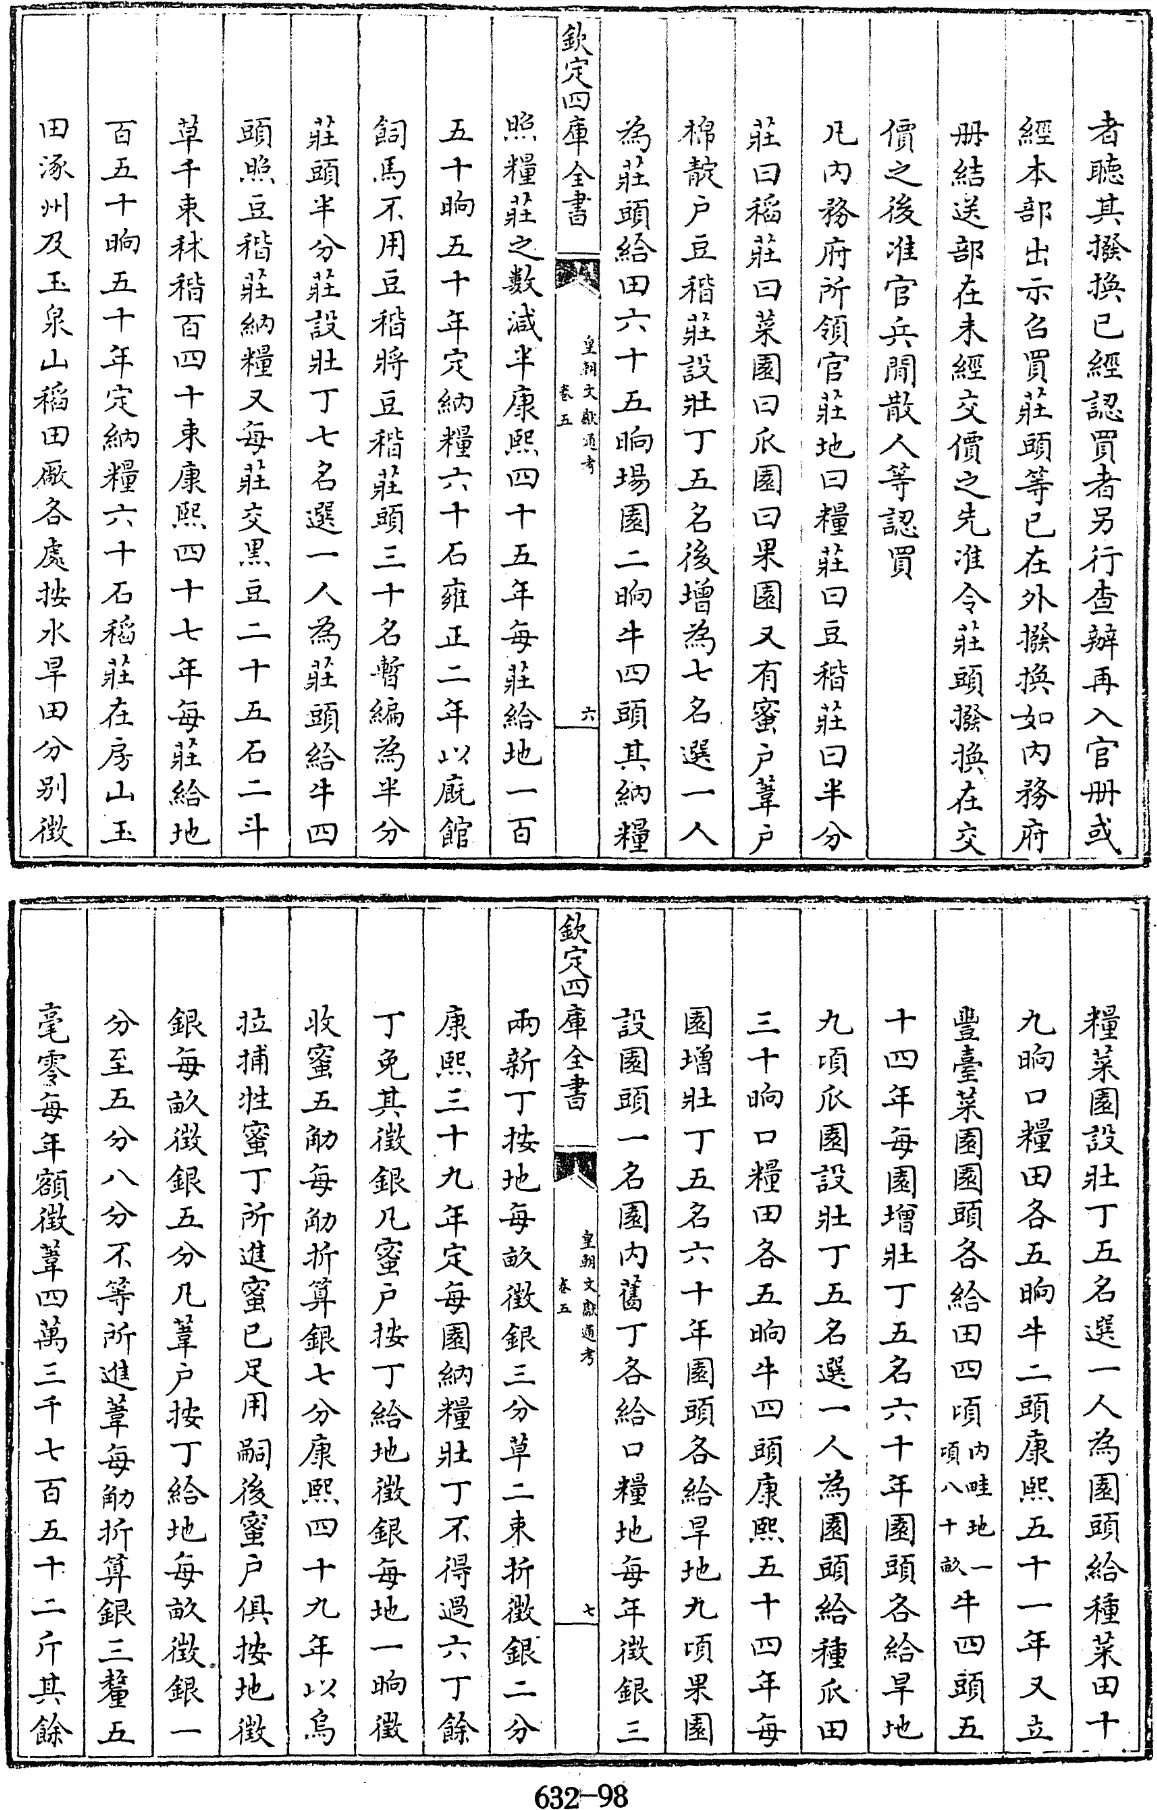 者聽其撥換已經認買者另行查辦再入官冊或
經本部出示召買莊頭等已在外撥換如內務府
冊結送部在未經交價之先准令莊頭撥換在交
價之後准官兵閒散人等認買
凡內務府所領官莊地曰糧莊曰豆稭莊曰半分
莊曰稻莊曰菜園曰瓜園曰果園又有蜜户葦户
棉靛户豆稭莊設壯丁五名後增為七名選一人
為莊頭給田六十五晌場園二晌牛四頭其納糧
欽定四庫全書
皇朝文獻通考
卷五
六
照糧莊之數減半康熙四十五年每莊給地一百
五十晌五十年定納糧六十石雍正二年以廐館
飼馬不用豆稭將豆稭莊頭三十名暫編為半分
莊頭半分莊設壯丁七名選一人為莊頭給牛四
頭照豆稭莊納糧又每莊交黑豆二十五石二斗
草千束秫稭百四十束康熙四十七年每莊給地
百五十晌五十年定納糧六十石稻莊在房山玉
田涿州及玉泉山稻田厰各處按水旱田分别徵
糧菜園設壯丁五名選一人為園頭給種菜田十
九晌口糧田各五晌牛二頭康熙五十一年又立
豐臺菜園園頭各給田四頃內畦地一頃八十畝牛四頭五
十四年每園增壯丁五名六十年園頭各給旱地
九頃瓜園設壯丁五名選一人為園頭給種瓜田
三十晌口糧田各五晌牛四頭康熙五十四年每
園增壯丁五名六十年園頭各給旱地九頃果園
設園頭一名園內舊丁各給口糧地每年徵銀三
欽定四庫全書
皇朝文獻通考
卷五
七
兩新丁按地每畝徵銀三分草二束折徵銀二分
康熙三十九年定每園納糧壯丁不得過六丁餘
丁免其徵銀凡蜜户按丁給地徵銀每地一晌徵
收蜜五觔每觔折算銀七分康熙四十九年以烏
拉捕牲蜜丁所進蜜已足用嗣後蜜户俱按地徵
銀每畝徵銀五分凡葦户按丁給地每畝徵銀一
分至五分八分不等所進葦每觔折算銀三釐五
毫零每年額徵葦四萬三千七百五十二斤其餘
632-98